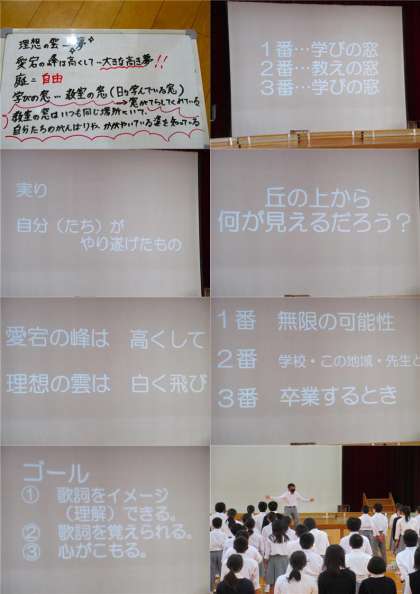 理想の雲 → 夢
愛宕の峰は高くして…大きな高き夢!!
庭=自由
学びの窓…教室の窓(日々学んでいる窓)
→窓がてらしてくれている
教室の窓はいつも同じ場所にいて、
自分たちのがんばりや、かがやいている姿を知っている
1番…学びの窓
2番…教えの窓
3番…学びの窓
実り
自分(たち)が
やり遂げたもの
丘の上から
何が見えるだろう?
愛宕の峰は 高くして
理想の雲は 白く飛び
1番 無限の可能性
2番 学校・この地域・先生と
3番 卒業するとき
ゴール
① 歌詞をイメージ
(理解)できる。
② 歌詞を覚えられる。
③ 心がこもる。